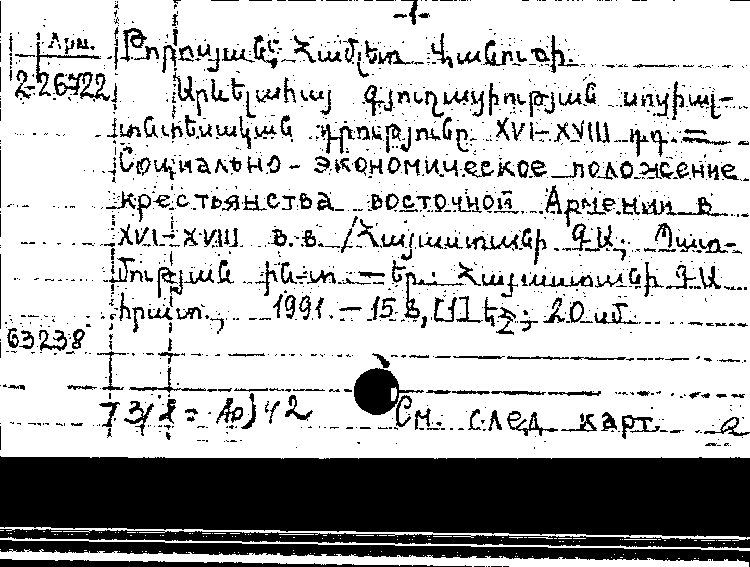 -1-
Арм.
2-26722
Թորոսյան, Համլետ Վանուշի.
Արևելահայ գյուղացիության սոցիալ-
տնտեսական դրությունը XVI-XVIII դդ. =
Социально-экономическое положение
крестьянства восточной Армении в
XVI-XVIII в.в. /Հայաստանի ԳԱ; Պատ-
մության ին-տ. — Եր.: Հայաստանի ԳԱ
հրատ., 1991. — 158, [1] էջ; 20 սմ.
63238
См. след. карт.